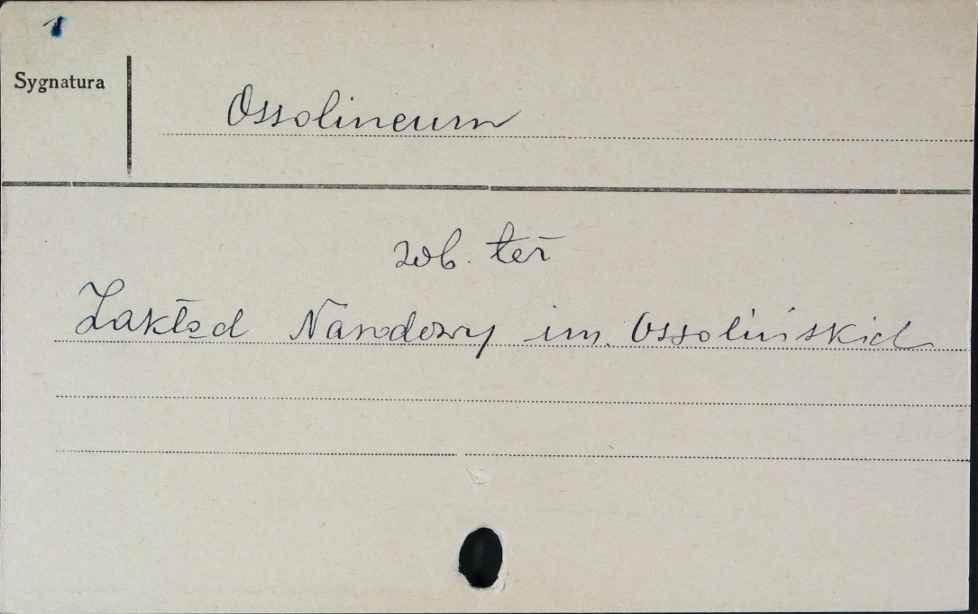 1
Sygnatura
Ossolineum
zob. też
Zakład Narodowy im. Ossolińskich